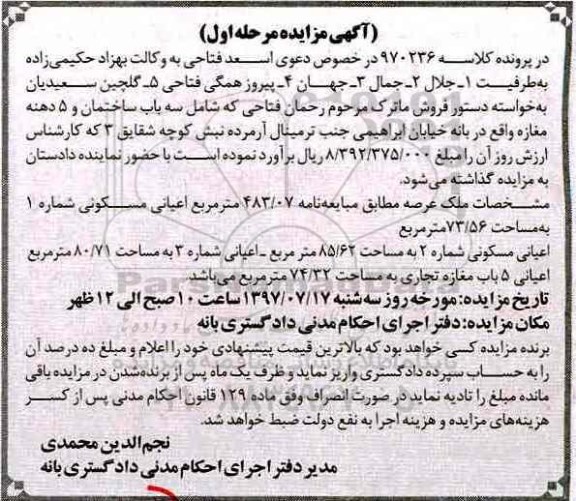 (آگهی مزایده مرحله اول)
در پرونده کلاسه ۹۷۰۲۳۶ در خصوص دعوی اسعد فتاحی به وکالت بهزاد حکیمی‌زاده
به‌طرفیت ۱- جلال ۲- جمال ۳- جهان ۴- پیروز همگی فتاحی ۵- گلچین سعیدیان
به‌خواسته دستور فروش ماترک مرحوم رحمان فتاحی که شامل سه باب ساختمان و ۵ دهنه
مغازه واقع در بانه خیابان ابراهیمی جنب ترمینال آرمرده نبش کوچه شقایق ۳ که کارشناس
ارزش روز آن را مبلغ ۸/۳۹۲/۳۷۵/۰۰۰ ریال برآورد نموده است با حضور نماینده دادستان
به مزایده گذاشته می‌شود.
مشخصات ملک عرصه مطابق مبایعه‌نامه ۴۸۳/۰۷ مترمربع اعیانی مسکونی شماره ۱
به‌مساحت ۷۳/۵۶ مترمربع
اعیانی مسکونی شماره ۲ به مساحت ۸۵/۶۲ متر مربع ـ اعیانی شماره ۳ به مساحت ۸۰/۷۱ مترمربع
اعیانی ۵ باب مغازه تجاری به مساحت ۷۴/۳۲ مترمربع می‌باشد.
تاریخ مزایده: مورخه روز سه‌شنبه ۱۳۹۷/۰۷/۱۷ ساعت ۱۰ صبح الی ۱۲ ظهر
مکان مزایده: دفتر اجرای احکام مدنی دادگستری بانه
برنده مزایده کسی خواهد بود که بالاترین قیمت پیشنهادی خود را اعلام و مبلغ ده درصد آن
را به حساب سپرده دادگستری واریز نماید و ظرف یک ماه پس از برنده‌شدن در مزایده باقی
مانده مبلغ را تادیه نماید در صورت انصراف وفق ماده ۱۲۹ قانون احکام مدنی پس از کسر
هزینه‌های مزایده و هزینه اجرا به نفع دولت ضبط خواهد شد.
نجم‌الدین محمدی
مدیر دفتر اجرای احکام مدنی دادگستری بانه